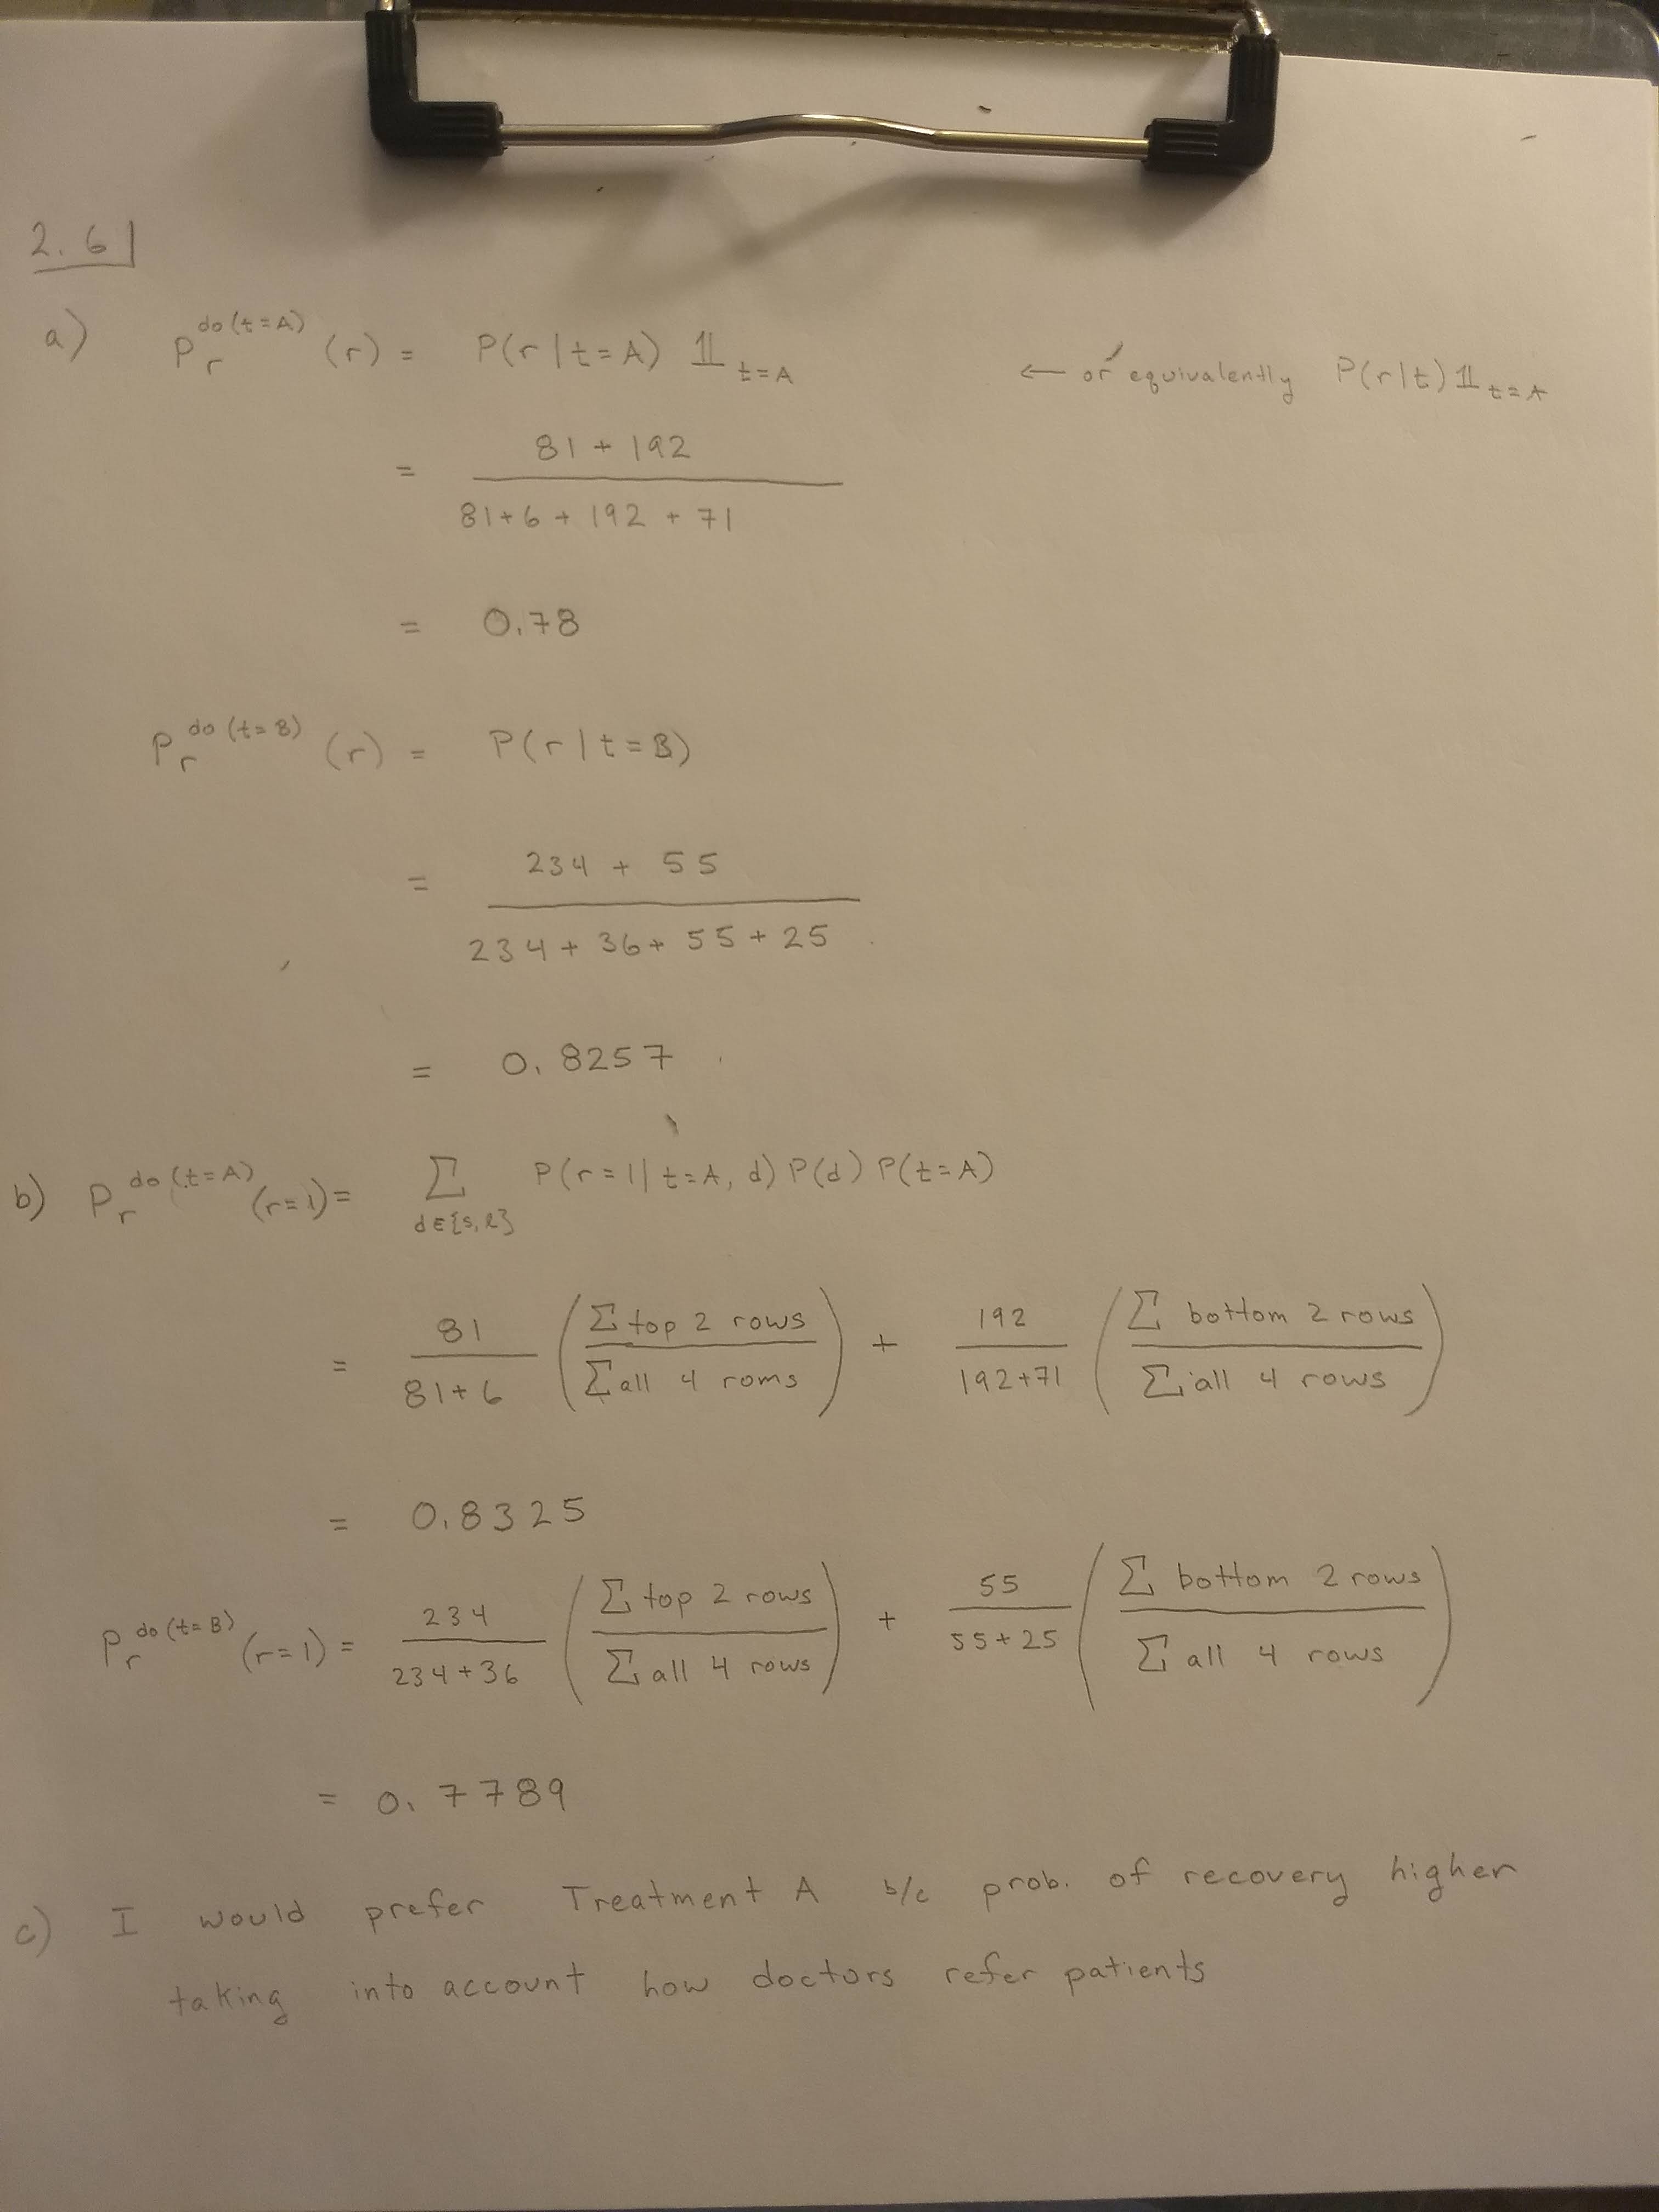 2.6
a) P_r^{do(t=A)} (r) = P(r|t=A) 𝟙_{t=A} ← or equivalently P(r|t) 𝟙_{t=A}
= \frac{81 + 192}{81+6 + 192 + 71}
= 0.78
P_r^{do(t=B)} (r) = P(r|t=B)
= \frac{234 + 55}{234 + 36 + 55 + 25}
= 0.8257
b) P_r^{do(t=A)} (r=1) = \sum_{d∈{s,l}} P(r=1|t=A, d) P(d) P(t=A)
= \frac{81}{81+6} (\frac{Σ top 2 rows}{Σ all 4 roms}) + \frac{192}{192+71} (\frac{Σ bottom 2 rows}{Σ all 4 rows})
= 0.8325
P_r^{do(t=B)} (r=1) = \frac{234}{234+36} (\frac{Σ top 2 rows}{Σ all 4 rows}) + \frac{55}{55+25} (\frac{Σ bottom 2 rows}{Σ all 4 rows})
= 0.7789
c) I would prefer Treatment A b/c prob. of recovery higher
taking into account how doctors refer patients